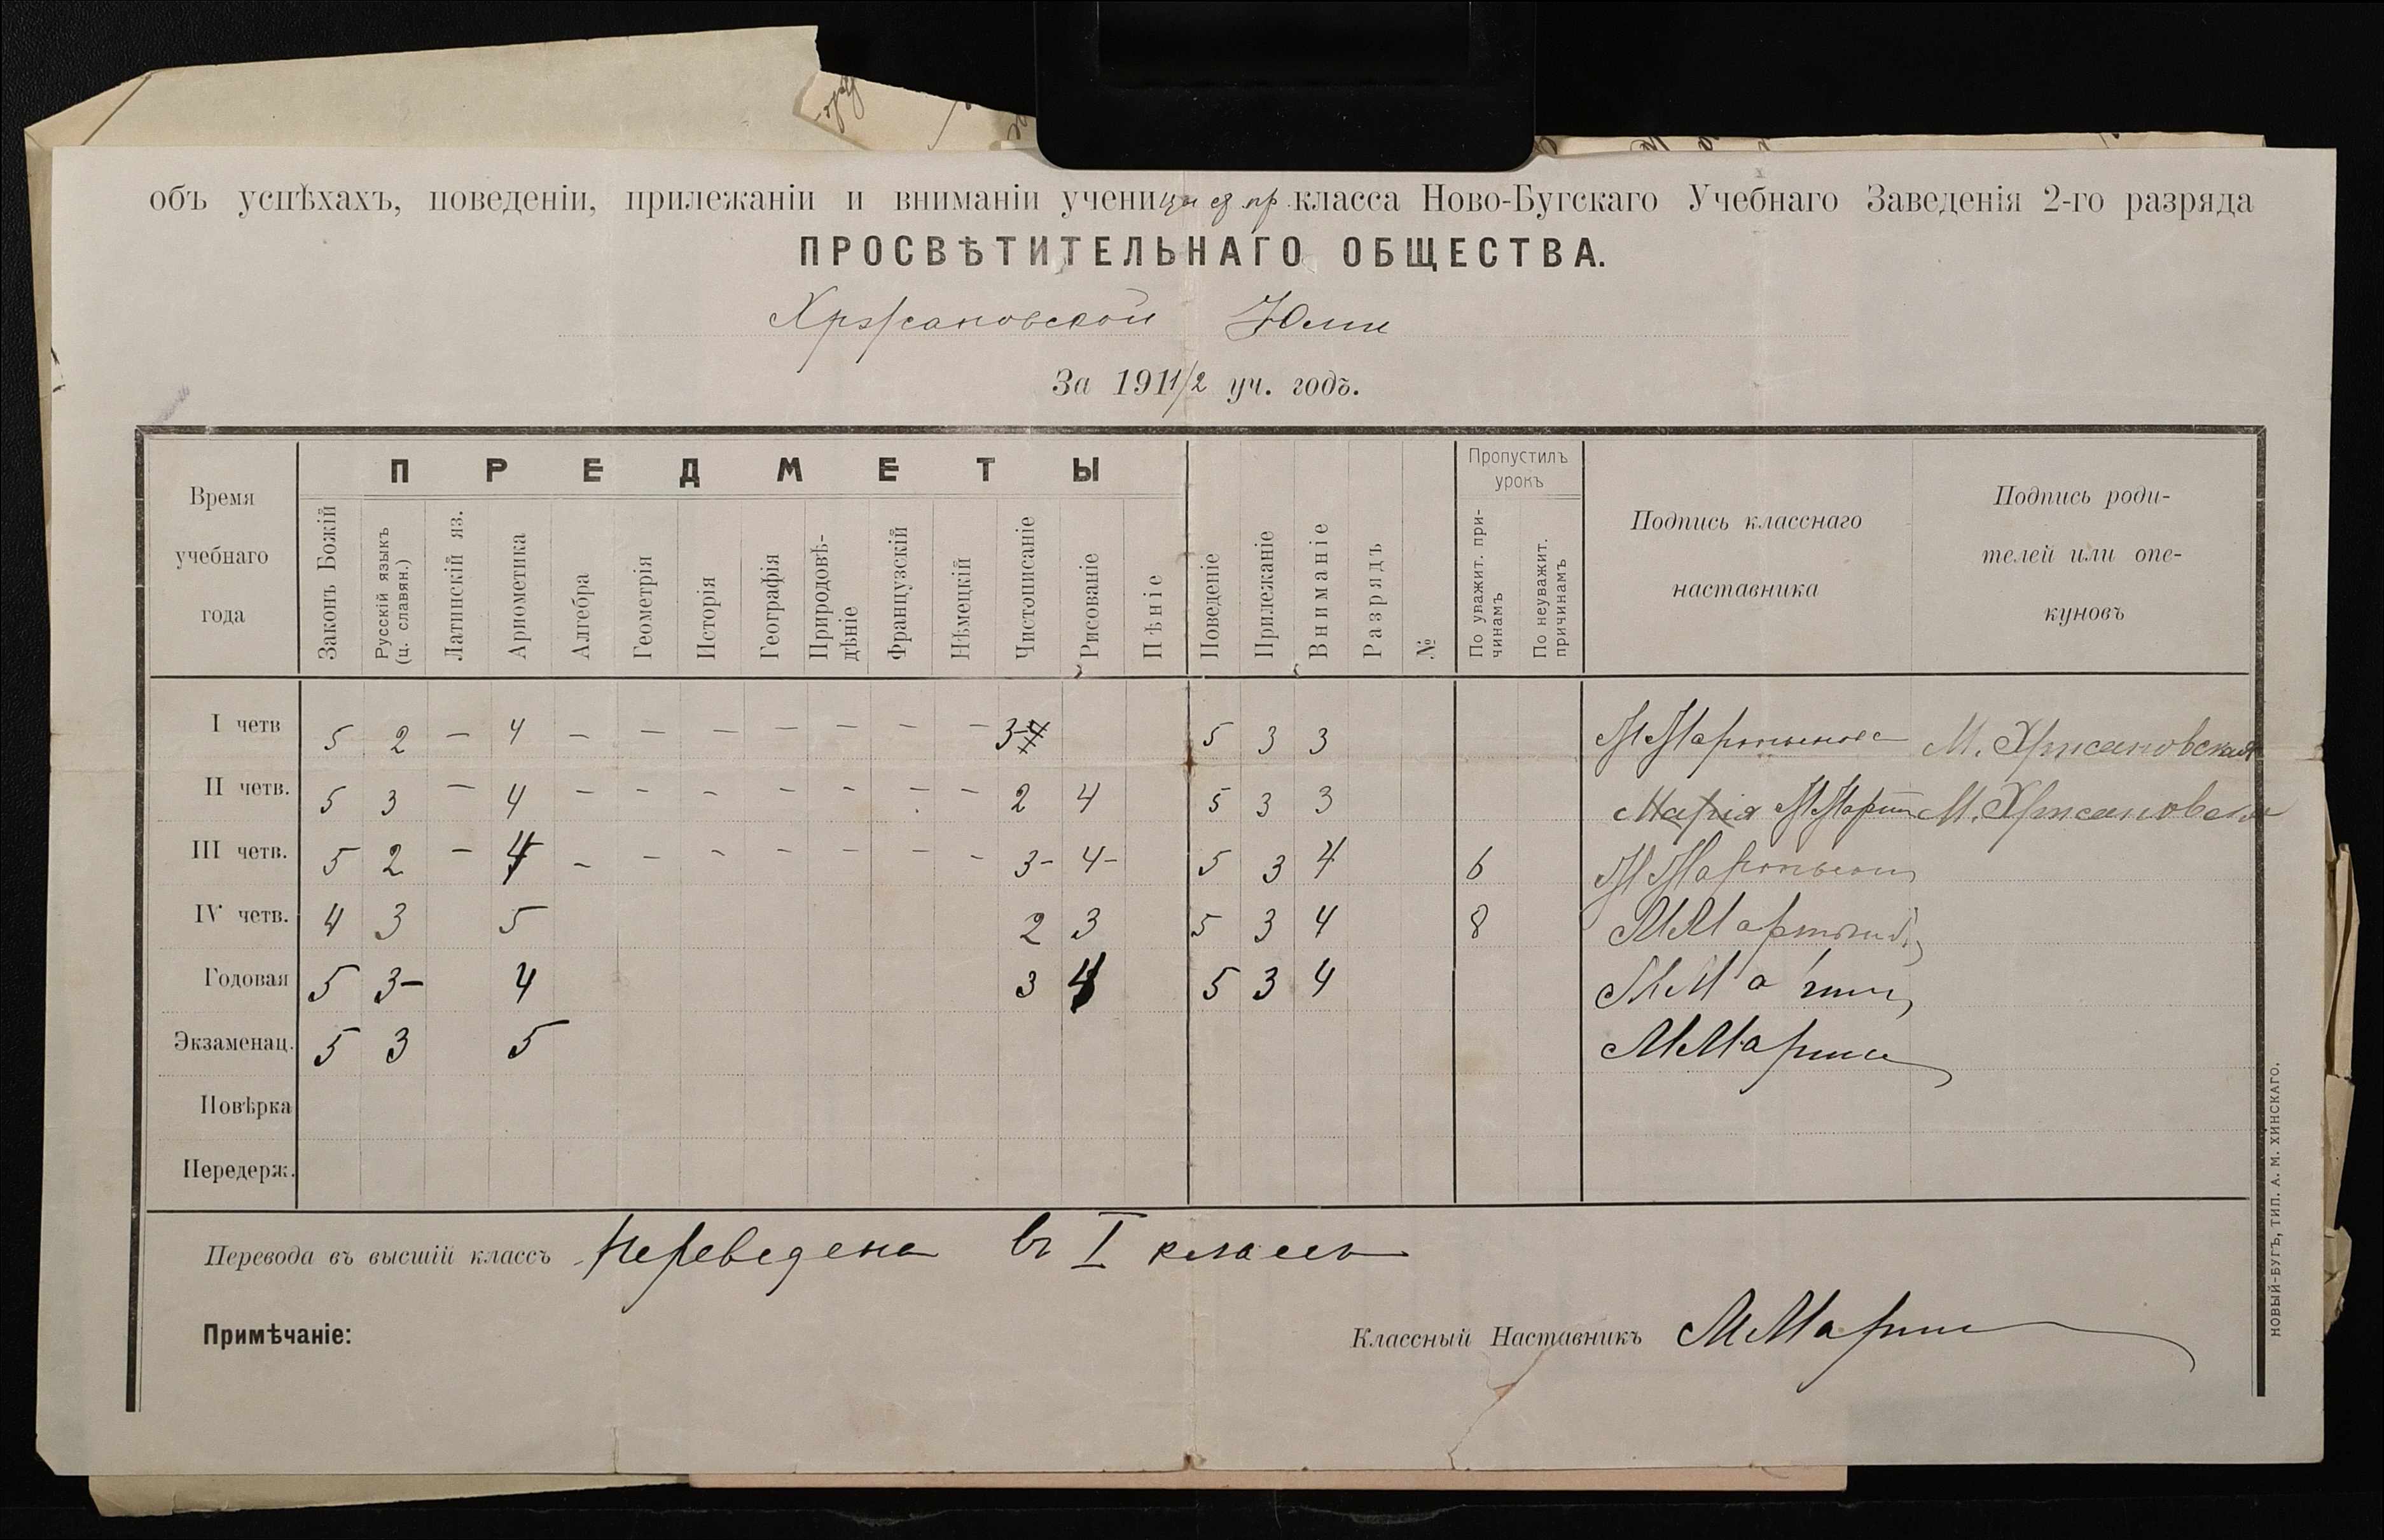 объ успѣхахъ, поведеніи, прилежаніи и вниманіи ученицы пр класса Ново-Бугскаго Учебнаго Заведенія 2-го разряда
ПРОСВѢТИТЕЛЬНАГО ОБЩЕСТВА.
Хржановской Юліи
За 1911/2 уч. годъ.
Время учебнаго года
ПРЕДМЕТЫ
Законъ Божій
Русскій языкъ (ц. славян.)
Латинскій яз.
Ариѳметика
Алгебра
Геометрія
Исторія
Географія
Природовѣ-
дѣніе
Французскій
Нѣмецкій
Чистописаніе
Рисованіе
Пѣніе
Поведеніе
Прилежаніе
Вниманіе
Разрядъ
№
Пропустилъ
урокъ
По уважит. при-
чинамъ
По неуважит.
причинамъ
Подпись класснаго
наставника
Подпись роди-
телей или опе-
куновъ
I четв 5 2 — 4 — — — — — — — 3- 5 3 3 М. Хржановская
II четв. 5 3 — 4 — — — — — — — 2 4 5 3 3 Марія М. Хржановская
III четв. 5 2 — 4 — — — — — — — 3- 4- 5 3 4 6
IV четв. 4 3 5 2 3 5 3 4 8
Годовая 5 3- 4 3 4 5 3 4
Экзаменац. 5 3 5
Повѣрка
Передерж.
Перевода въ высшій классъ Переведена въ I классъ
Примѣчаніе:
Классный Наставникъ
НОВЫЙ-БУГЪ, ТИП. А. М. ХИНСКАГО.